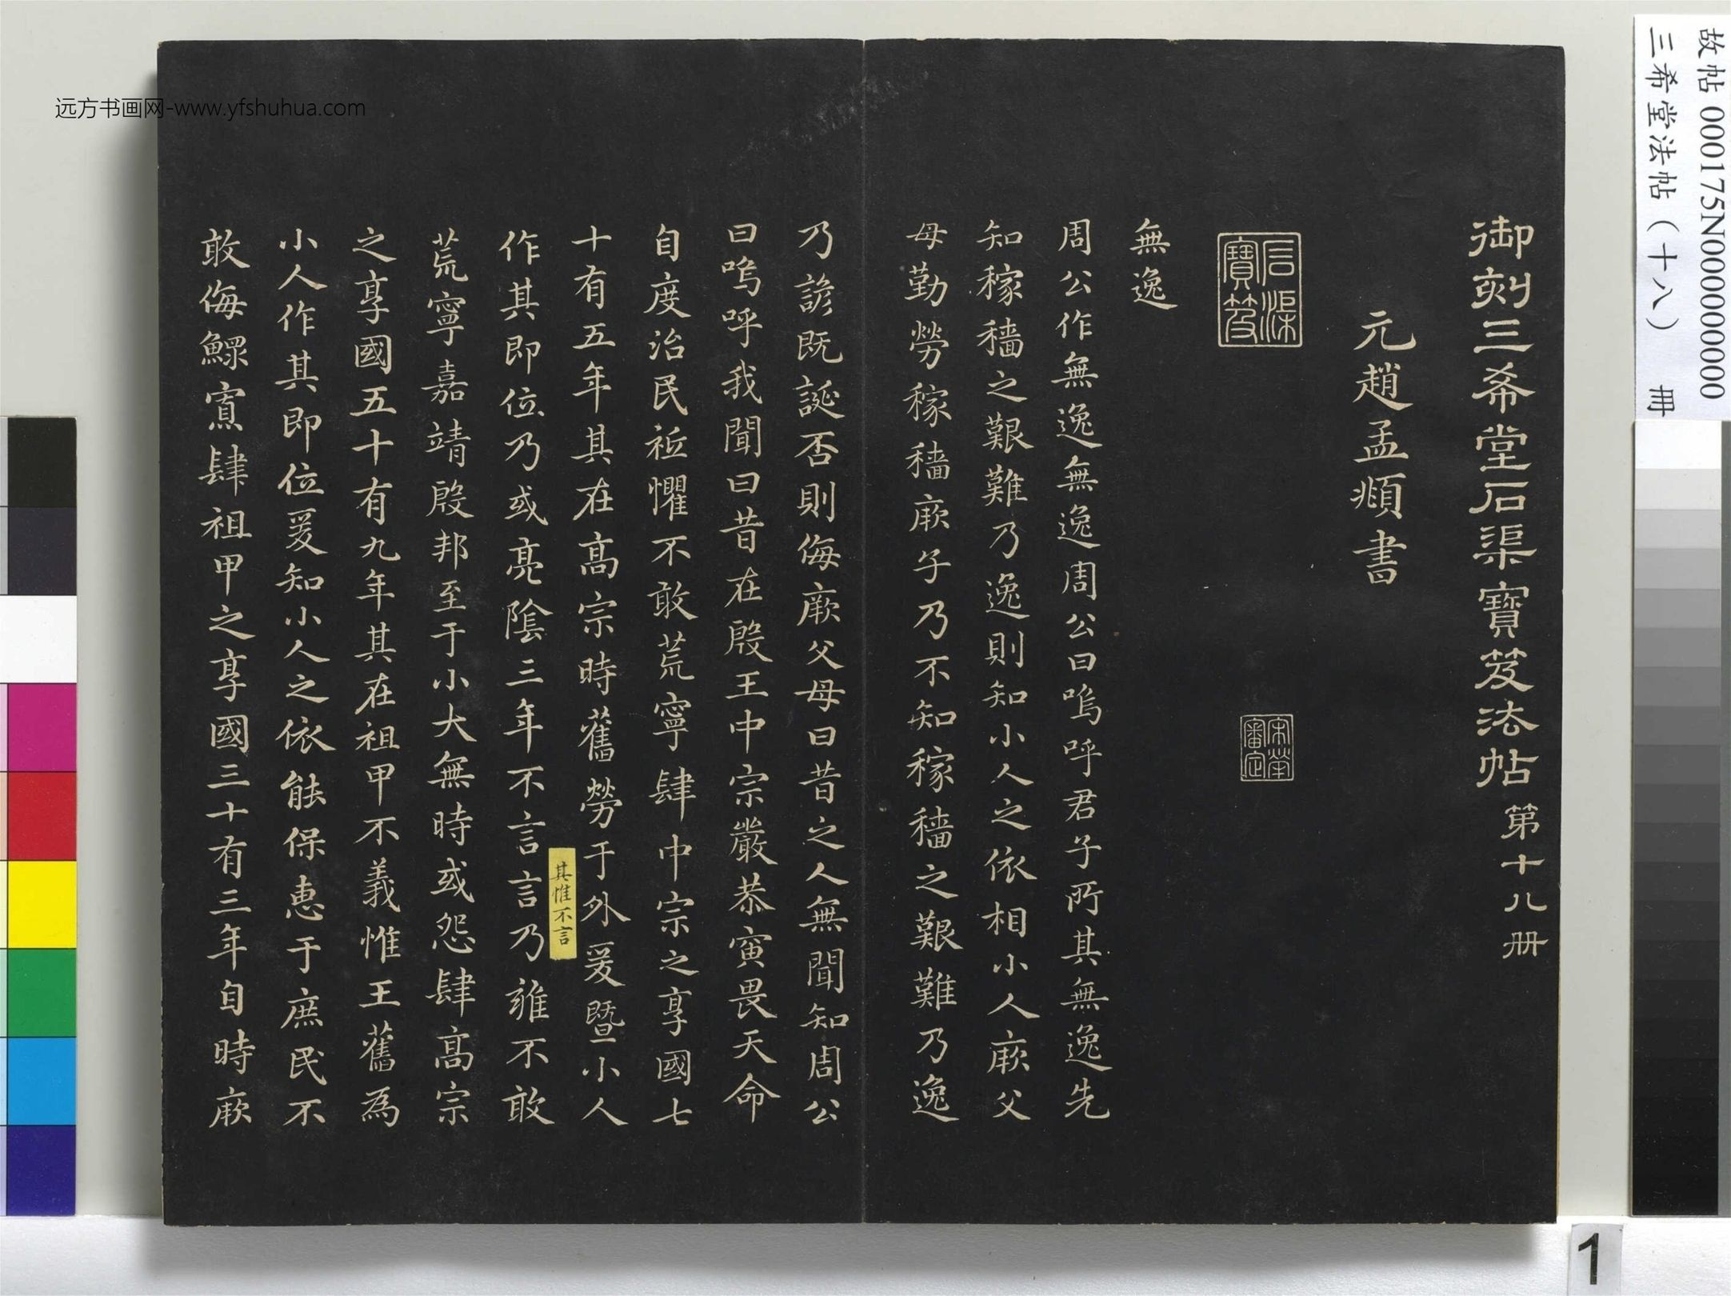 御刻三希堂石渠寶笈法帖第十八册
元趙孟頫書
石渠寶笈
宋犖審定
無逸
周公作無逸無逸周公曰嗚呼君子所其無逸先
知稼穡之艱難乃逸則知小人之依相小人厥父
母勤勞稼穡厥子乃不知稼穡之艱難乃逸
乃諺既誕否則侮厥父母曰昔之人無聞知周公
曰嗚呼我聞曰昔在殷王中宗嚴恭寅畏天命
自度治民祗懼不敢荒寧肆中宗之享國七
十有五年其在高宗時舊勞于外爰暨小人
其惟不言
作其即位乃或亮陰三年不言言乃雍不敢
荒寧嘉靖殷邦至于小大無時或怨肆高宗
之享國五十有九年其在祖甲不義惟王舊為
小人作其即位爰知小人之依能保惠于庶民不
敢侮鰥寡肆祖甲之享國三十有三年自時厥
故帖 000175N000000000
三希堂法帖（十八） 冊
1
远方书画网-www.yfshuhua.com